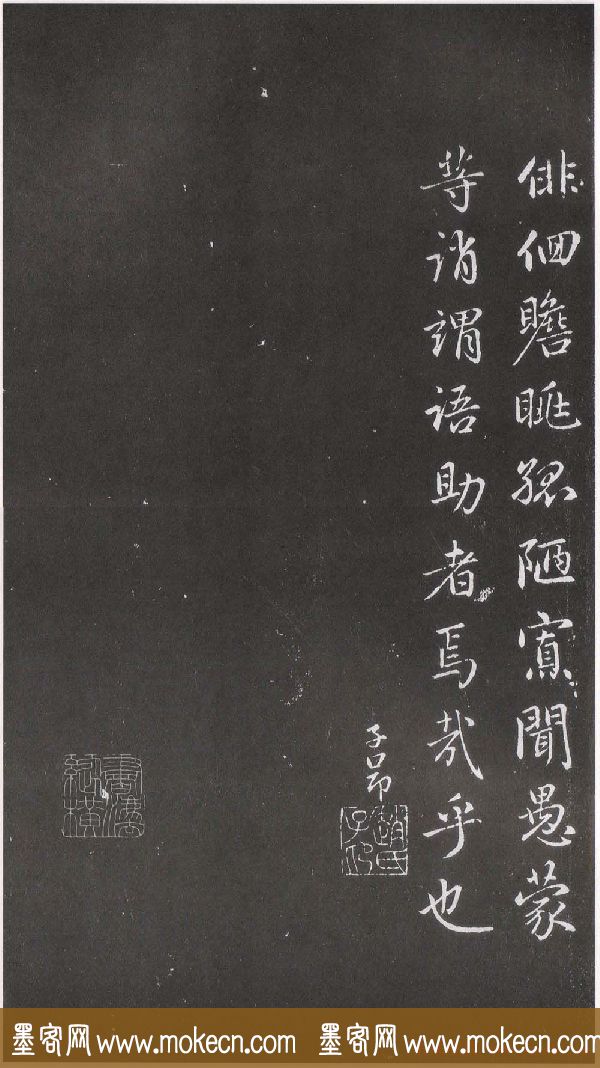 俳佪瞻眺孤陋寡聞愚蒙
等誚謂語助者焉哉乎也
子昂
趙氏子昂
墨客网 www.mokecn.com 墨客网 www.mokecn.com